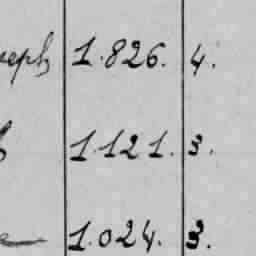 1.826. 4.
1.121. 3.
1.024. 3.